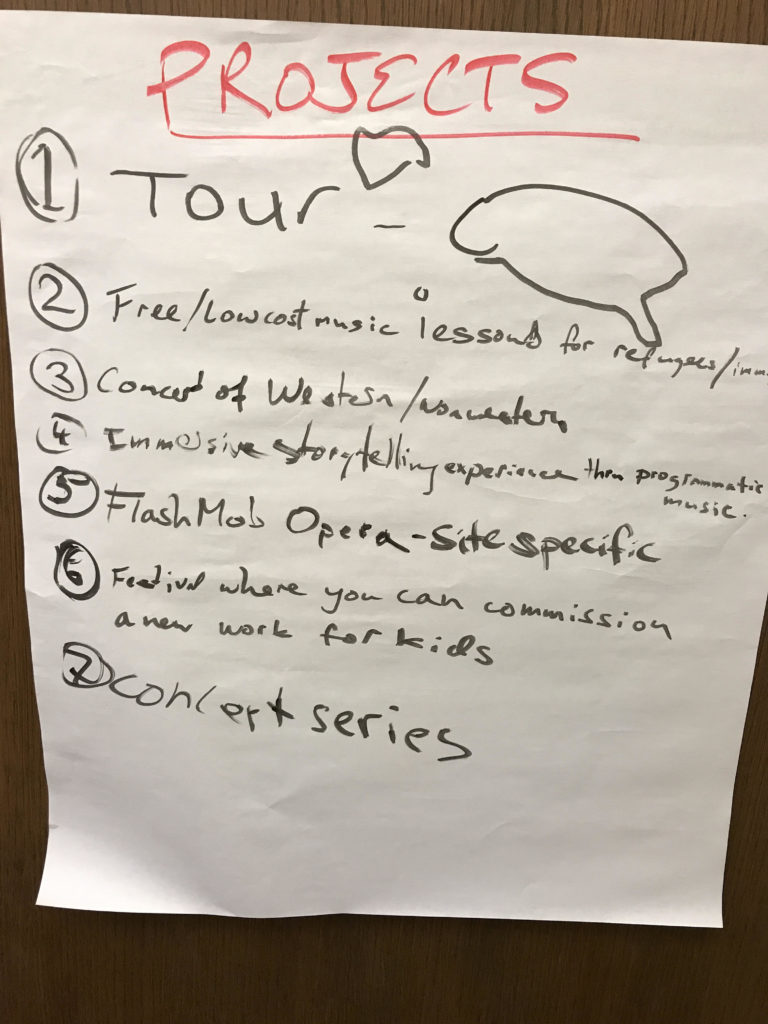 PROJECTS
1 Tour -
2 Free/Low cost music lessons for refugees/imm
3 Concert of Western/nonwestern
4 Immersive storytelling experience thru programmatic
music.
5 Flash Mob Opera - site specific
6 Festival where you can commission
a new work for kids
7 concert series